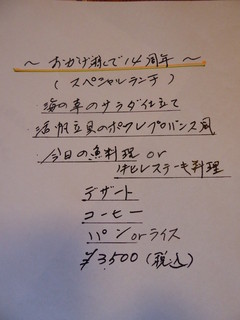 ～おかげ様で14周年～
(スペシャルランチ)
海の幸のサラダ仕立て
・活帆立貝のポワレプロバンス風
・今日の魚料理 or
ヒレステーキ料理
デザート
コーヒー
パン or ライス
¥3,500(税込)